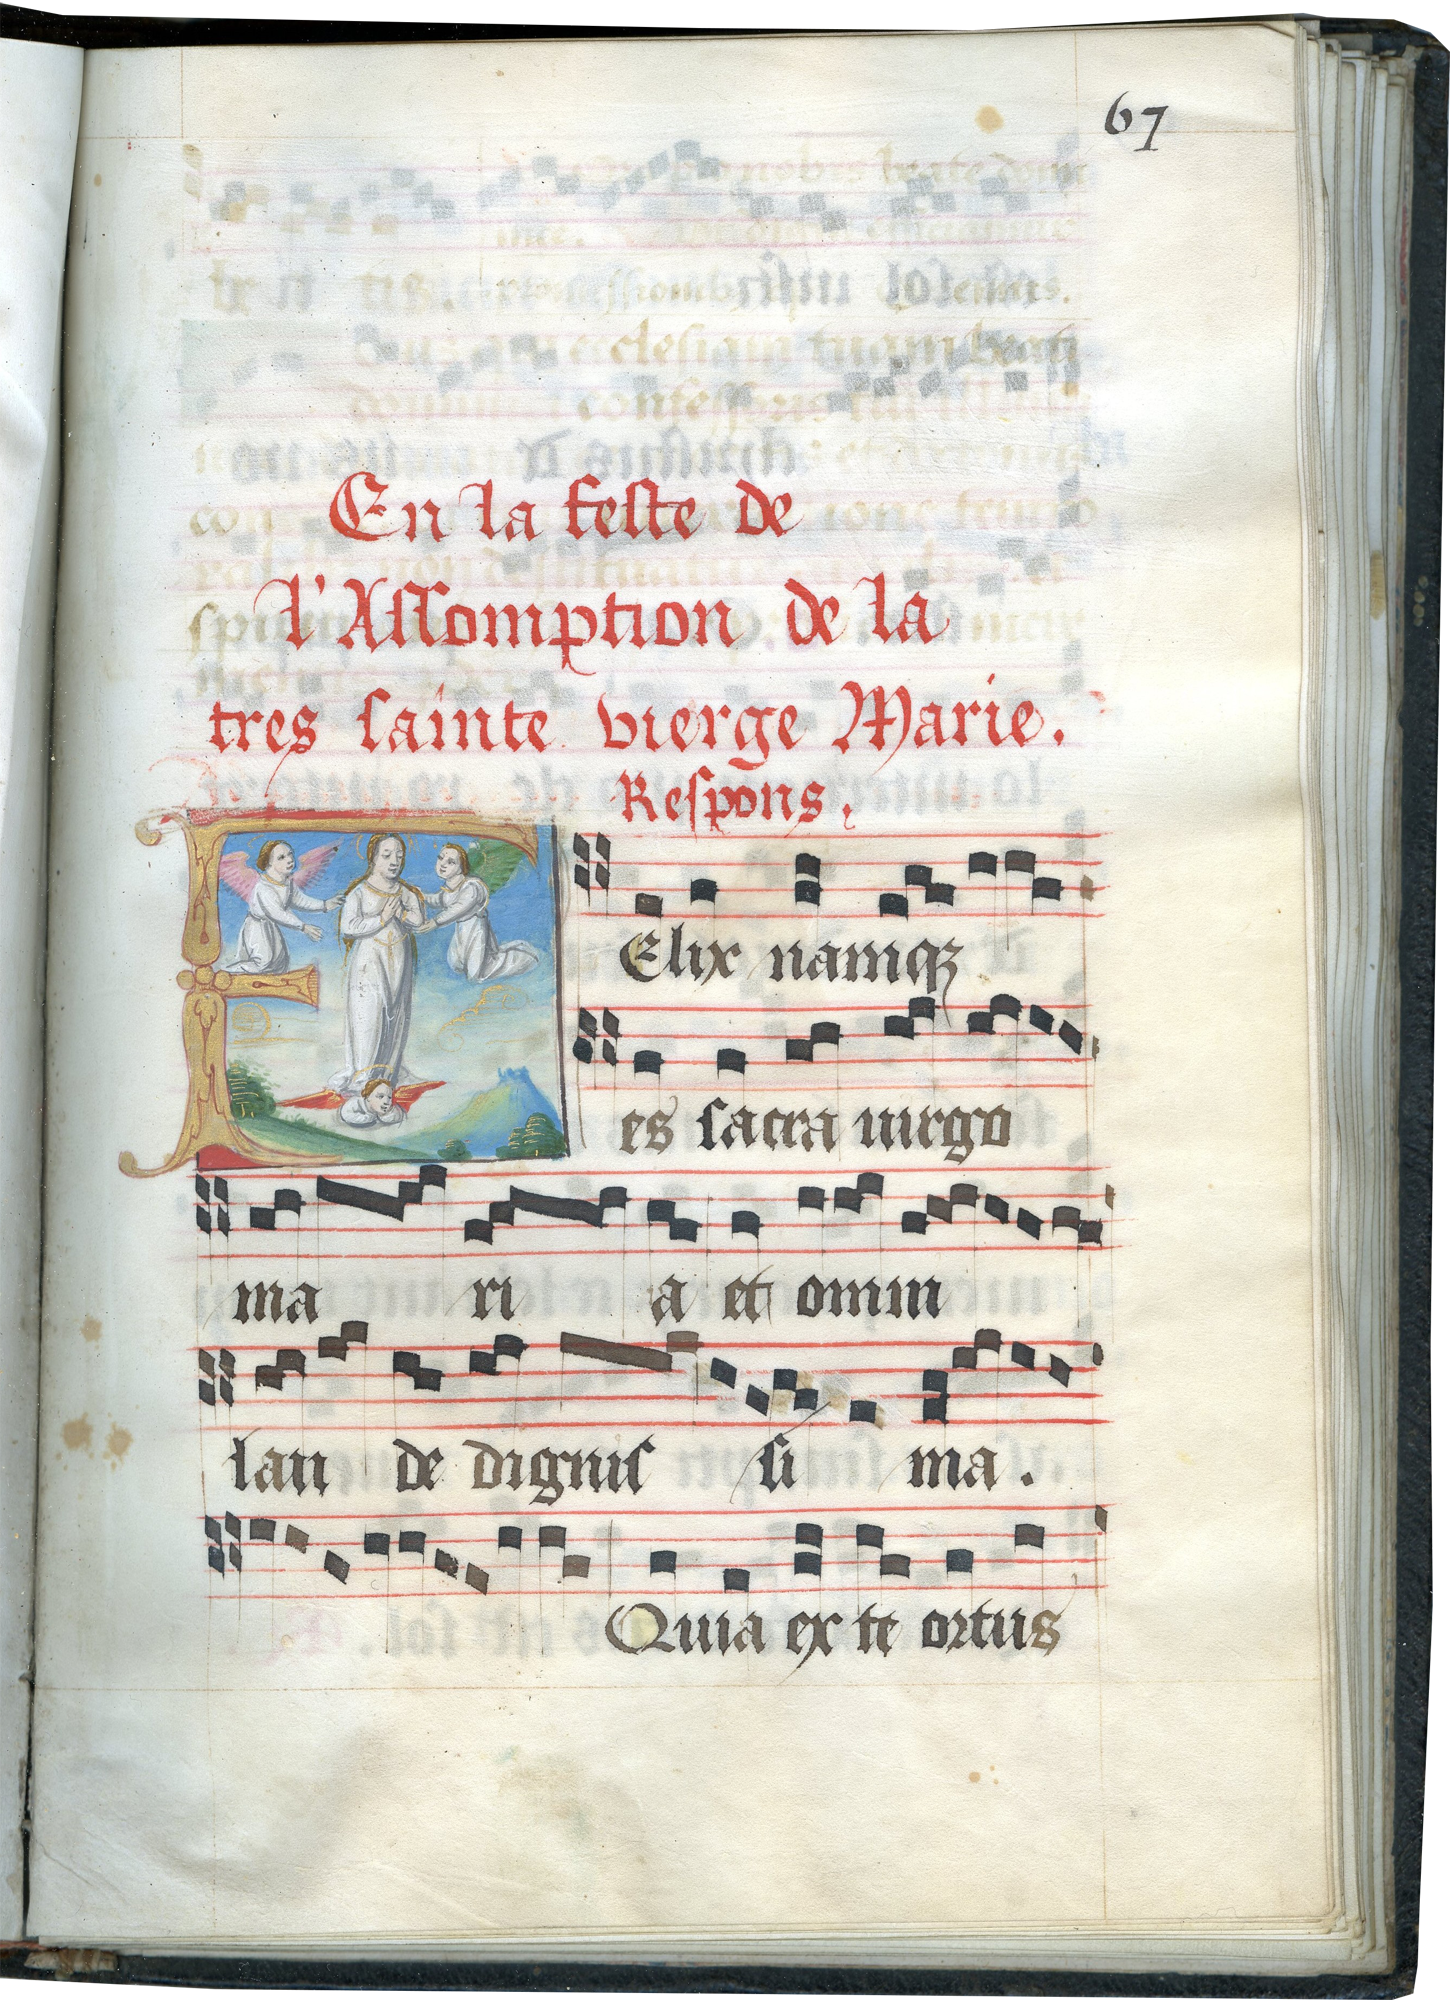 67
En la feste de
l'Assomption de la
tres sainte vierge Marie.
Respons.
FElix namqꝫ
es sacra uirgo
ma ri a et omni
lau de dignis si ma.
Quia ex te ortus